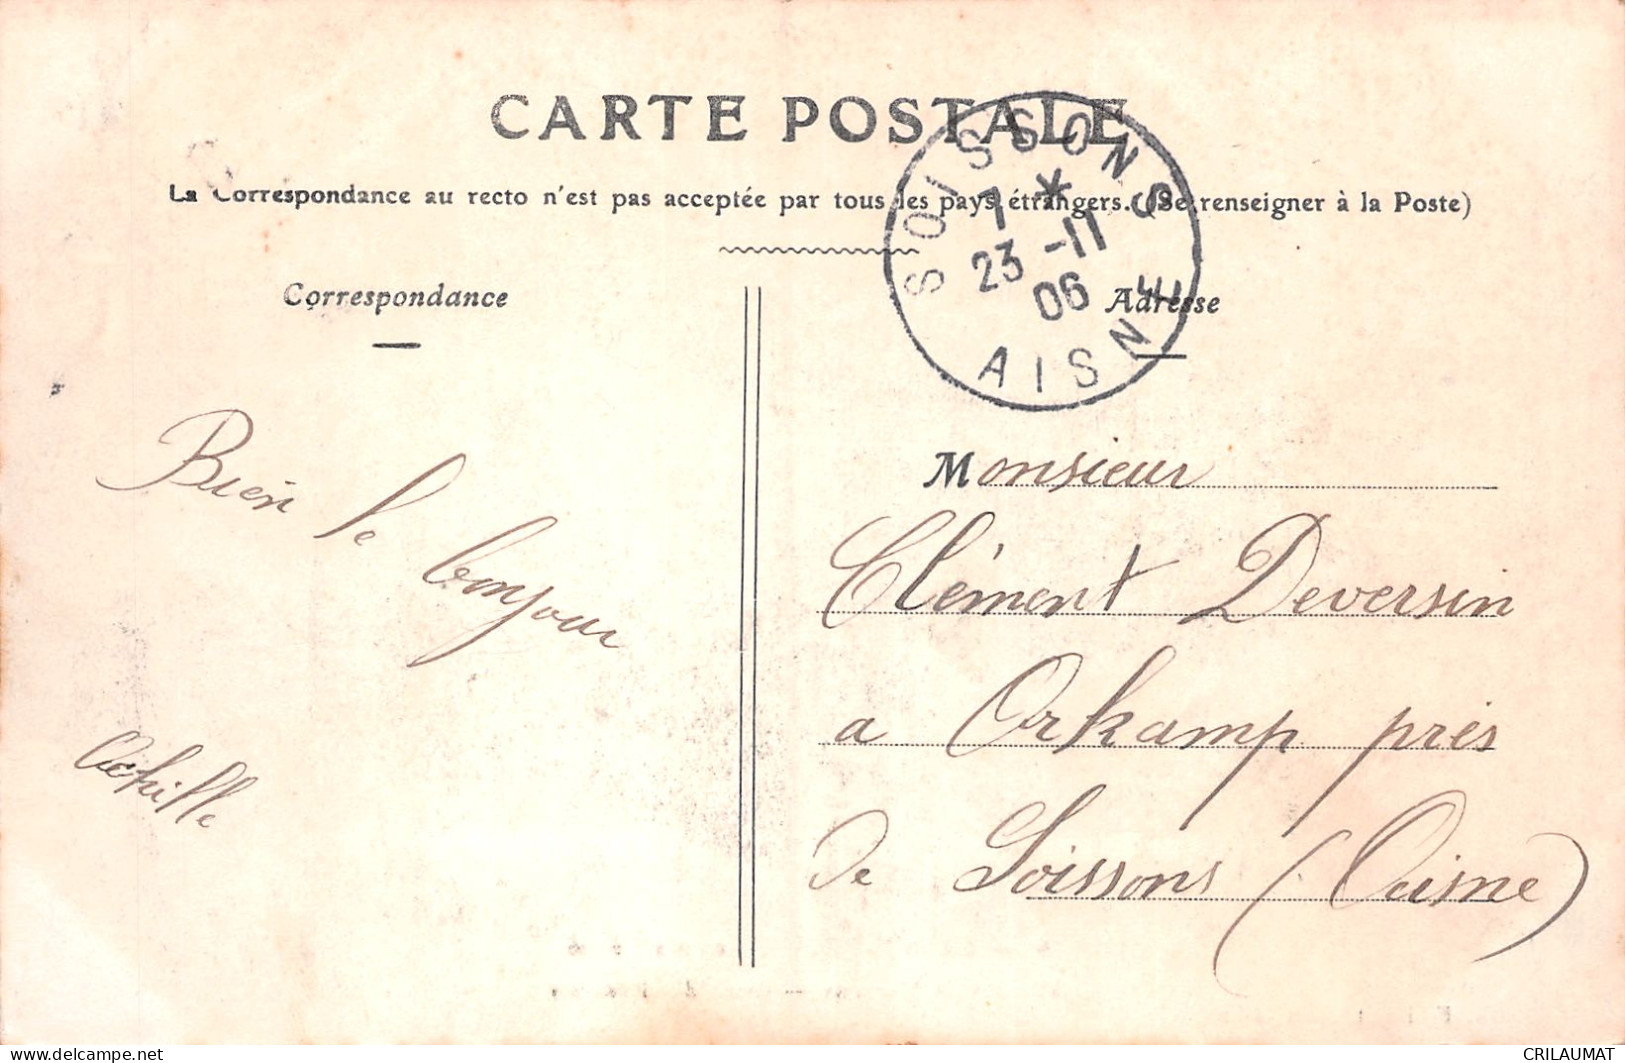 CARTE POSTALE
La Correspondance au recto n'est pas acceptée par tous les pays étrangers. (Se renseigner à la Poste)
SOISSONS
7 *
23 -11
06
AISNE
Correspondance
Adresse
Bien le bonjour
Achille
Monsieur
Clément Deversin
a Orkamp près
de Soissons (Aisne)
CRILAUMAT